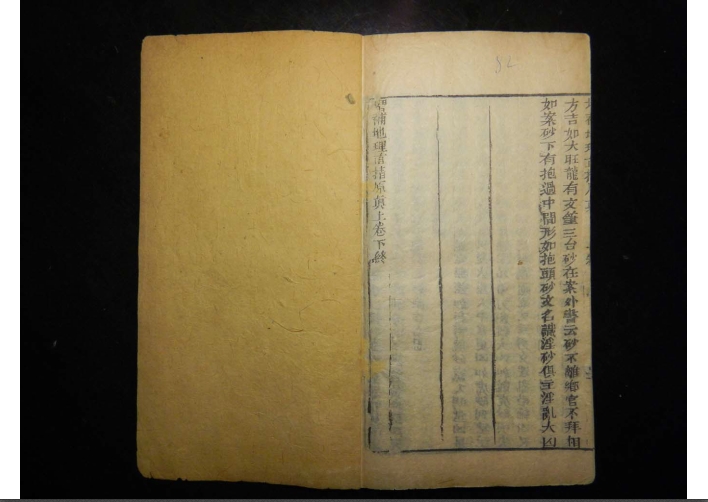 方吉如大旺龍有文筆三台砂在案外 云砂不離鄉官不拜相
如案砂下有抱過中間形如抱頭砂又名 淫砂但主淫亂大凶
雪浦地理直指原真上卷下終